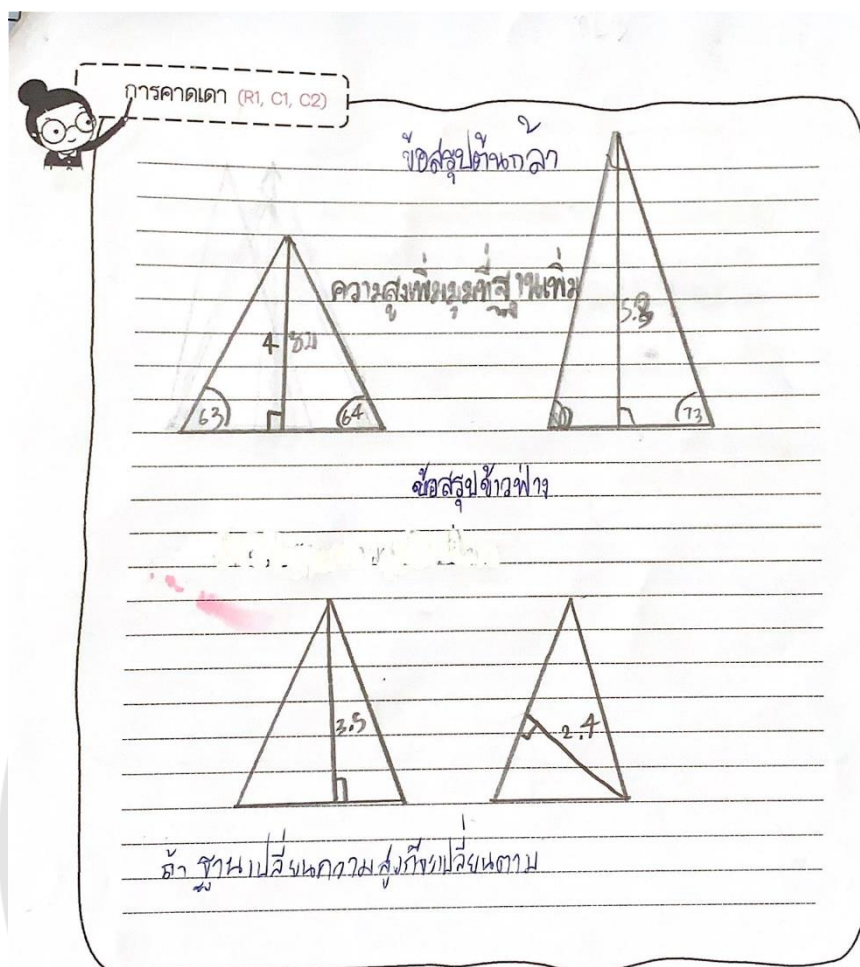 การคาดเดา (R1, C1, C2)
ข้อสรุปต้นกล้า
ความสูงเพิ่มมุมที่ฐานเพิ่ม
4 ซม
63
64
73
ข้อสรุปข้าวฟ่าง
3.5
2.4
ถ้า ฐานเปลี่ยนความสูงก็จะเปลี่ยนตาม